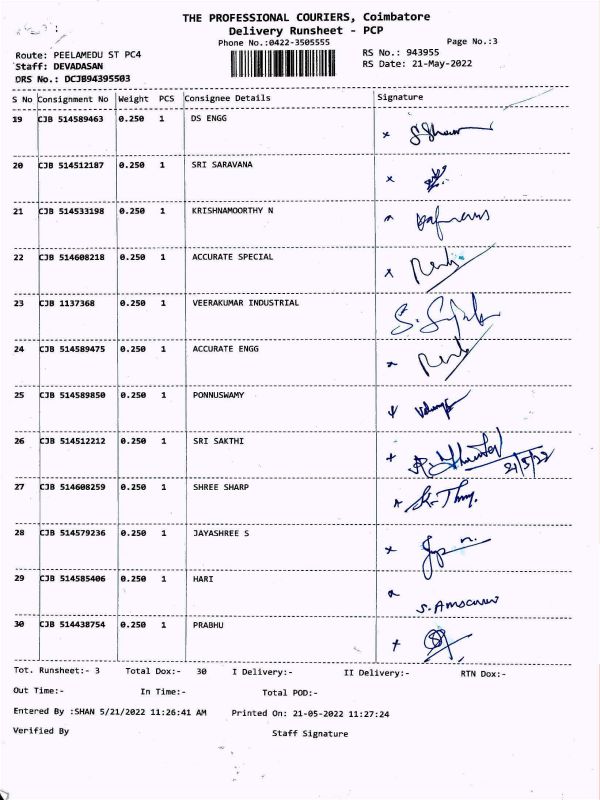 THE PROFESSIONAL COURIERS, Coimbatore
Delivery Runsheet - PCP
Phone No.:0422-3505555
Page No.:3
Route: PEELAMEDU ST PC4
RS No.: 943955
Staff: DEVADASAN
RS Date: 21-May-2022
DRS No.: DCJB94395503
S No Consignment No Weight PCS Consignee Details Signature
19 CJB 514589463 0.250 1 DS ENGG
20 CJB 514512187 0.250 1 SRI SARAVANA
21 CJB 514533198 0.250 1 KRISHNAMOORTHY N
22 CJB 514608218 0.250 1 ACCURATE SPECIAL
23 CJB 1137368 0.250 1 VEERAKUMAR INDUSTRIAL
24 CJB 514589475 0.250 1 ACCURATE ENGG
25 CJB 514589850 0.250 1 PONNUSWAMY
26 CJB 514512212 0.250 1 SRI SAKTHI
21/5/22
27 CJB 514608259 0.250 1 SHREE SHARP
28 CJB 514579236 0.250 1 JAYASHREE S
29 CJB 514585406 0.250 1 HARI
30 CJB 514438754 0.250 1 PRABHU
Tot. Runsheet:- 3 Total Dox:- 30 I Delivery:- II Delivery:- RTN Dox:-
Out Time:- In Time:- Total POD:-
Entered By :SHAN 5/21/2022 11:26:41 AM Printed On: 21-05-2022 11:27:24
Verified By Staff Signature